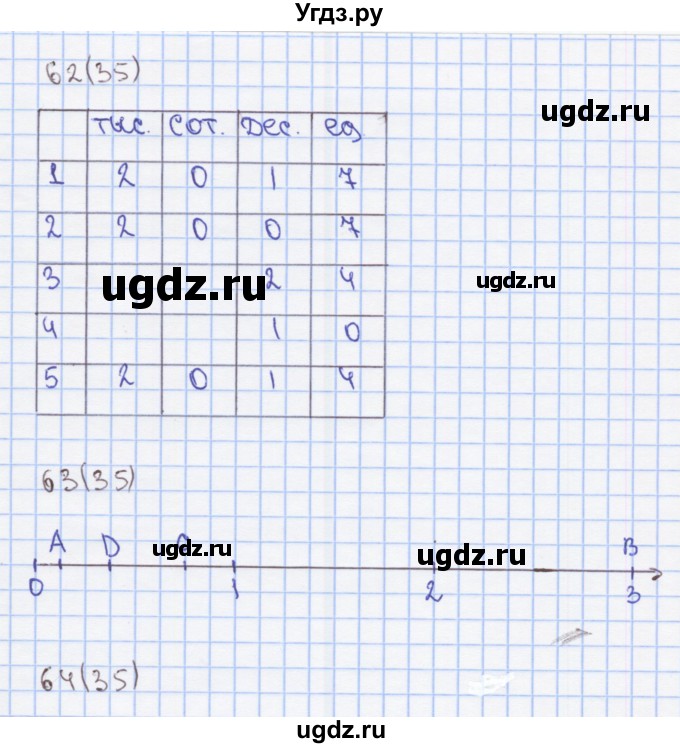 Угдз.ру
62(35)
ugdz.ru
тыс. сот. дес. ед.
1 2 0 1 7
2 2 0 0 7
3 2 4
ugdz.ru
ugdz.ru
4 1 0
5 2 0 1 4
63(35)
A D B
ugdz.ru
ugdz.ru
0 1 2 3
64(35)
ugdz.ru